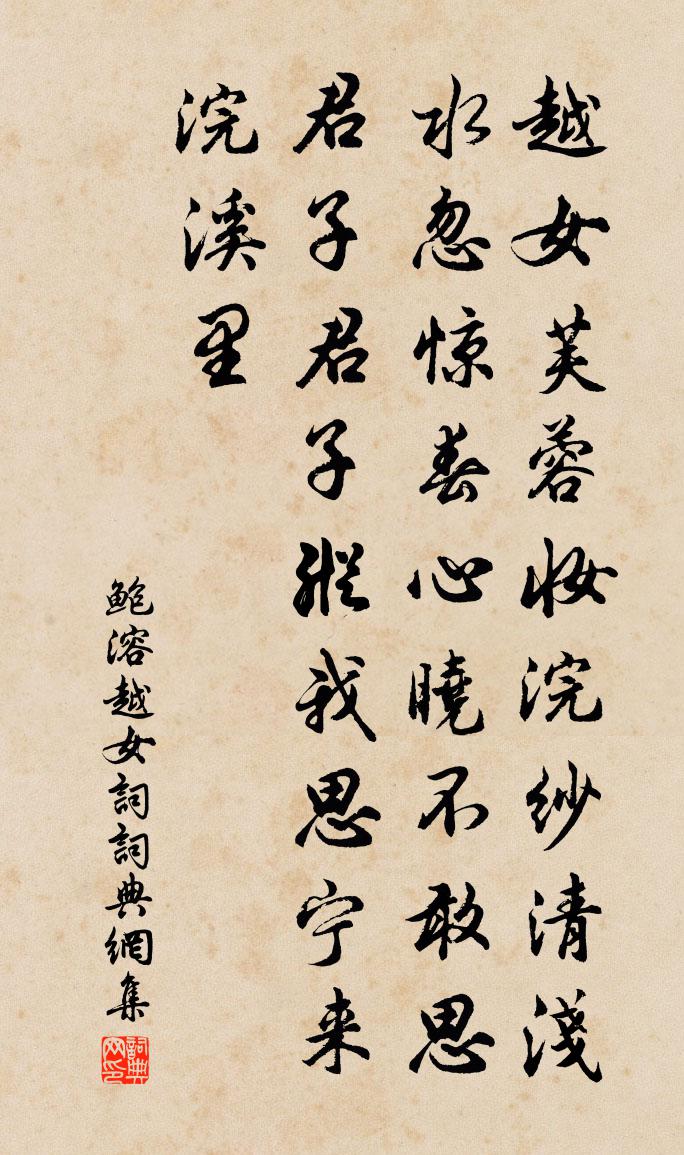 越女芙蓉妝浣紗清淺
水忽惊春心曉不敢思
君子君子縱我思宁来
浣溪里
鮑溶越女詞詞典網集
詞典网印